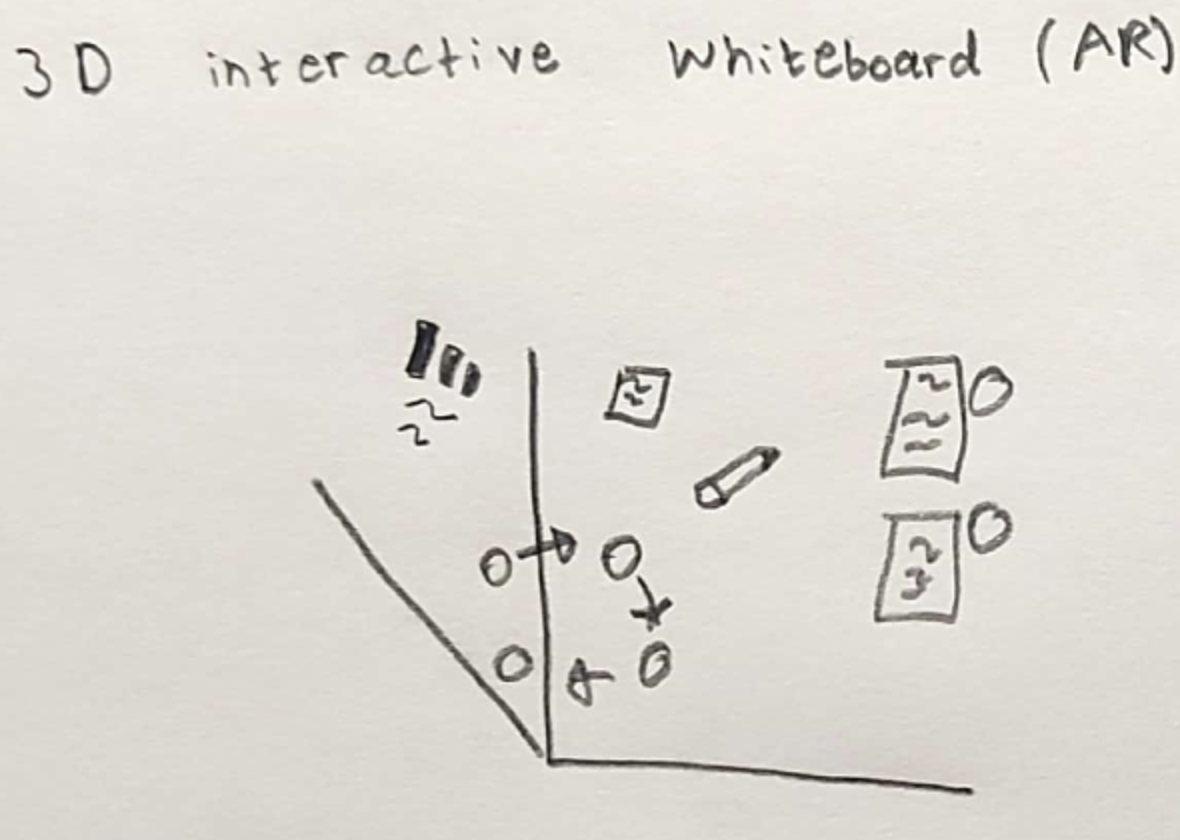 3D interactive whiteboard (AR)